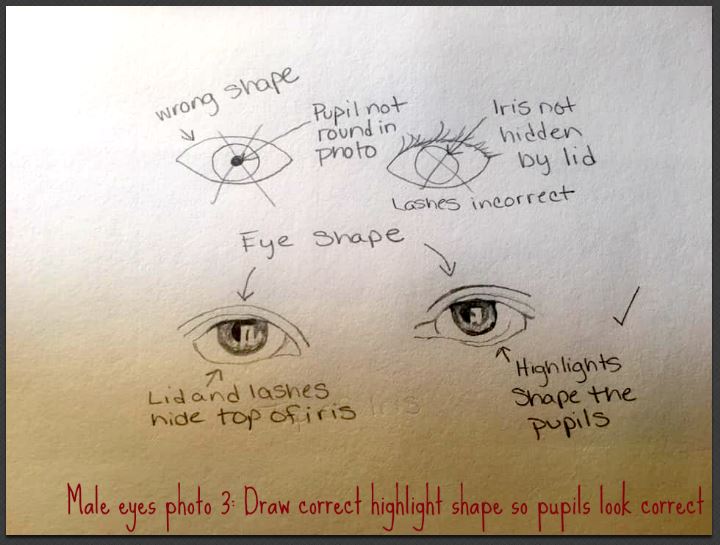 wrong shape
Pupil not
round in
photo
Iris not
hidden
by lid
Lashes incorrect
Eye shape
Lid and lashes
hide top of iris
Highlights
shape the
pupils
Male eyes photo 3: Draw correct highlight shape so pupils look correct